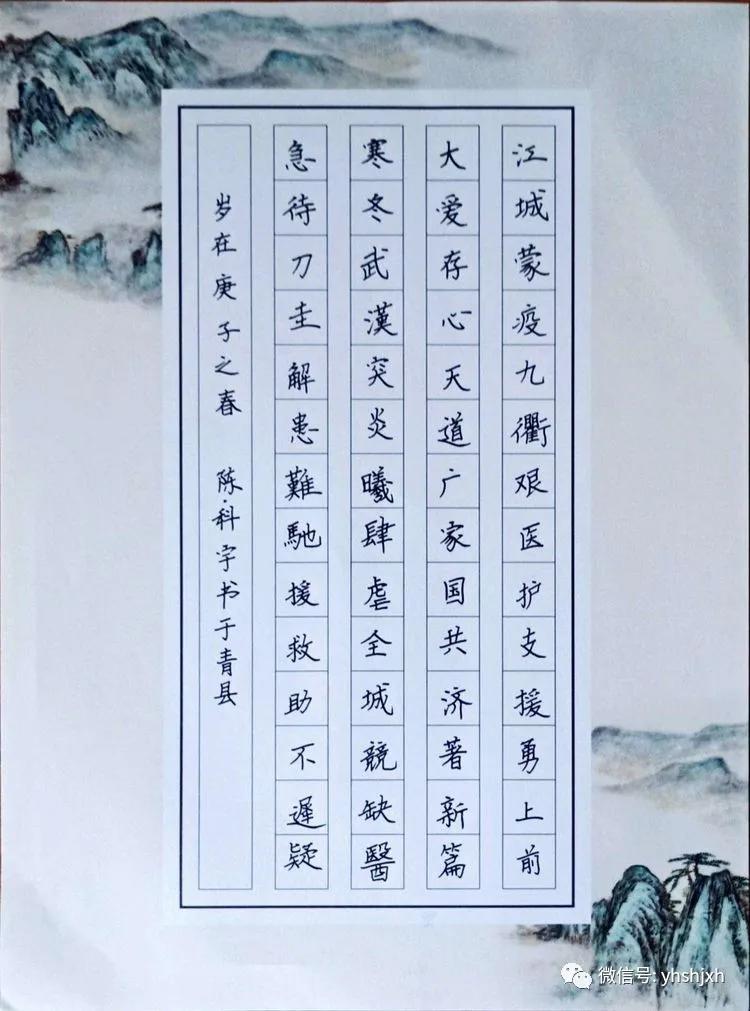 江城蒙疫九衢艰医护支援勇上前
大爱存心天道广家国共济著新篇
寒冬武漢突炎曦肆虐全城競缺醫
急待刀圭解患難馳援救助不遲疑
岁在庚子之春 陈科宇书于青县
微信号: yhshjxh